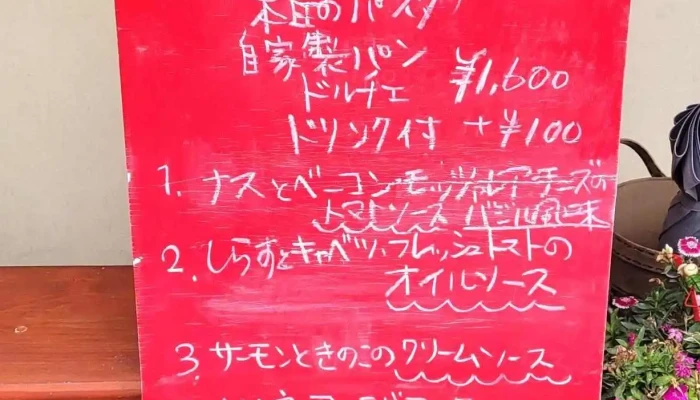 本日のパスタ
自家製パン
ドルチェ ¥1,600
ドリンク付 +¥100
1. ナスとベーコン・モッツァレアチーズの
トマトソース バジル風味
2. しらすとキャベツ、フレッシュトマトの
オイルソース
3. サーモンときのこのクリームソース